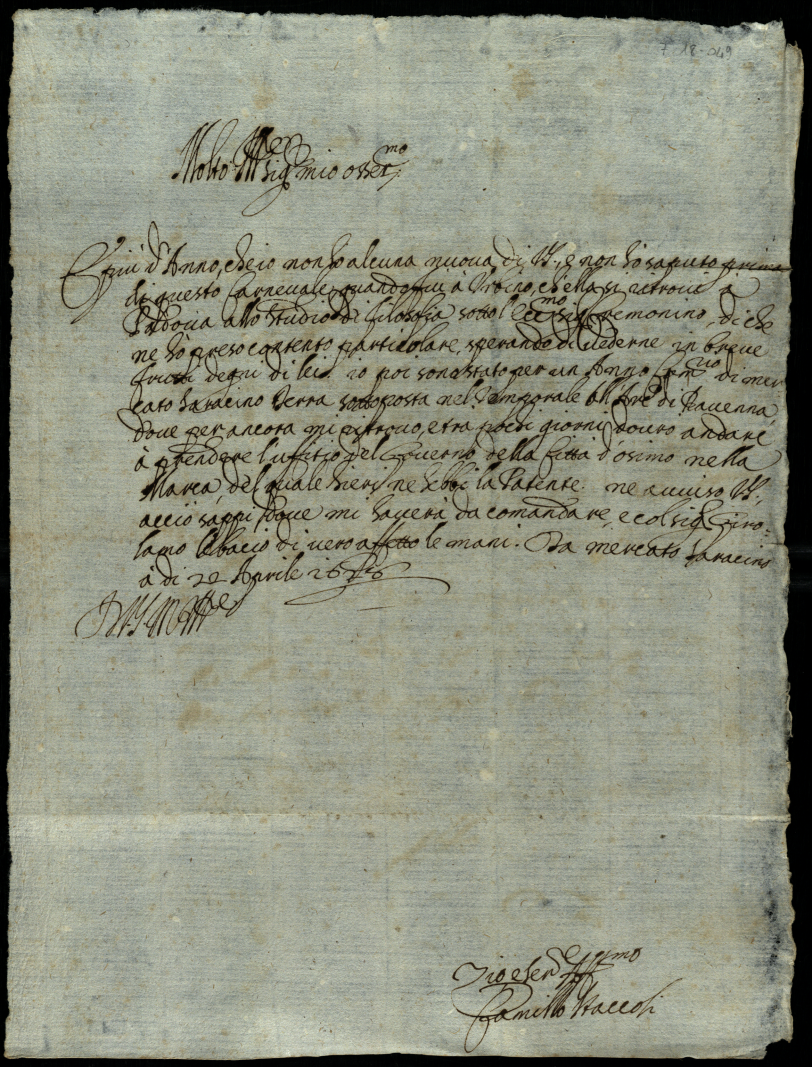 7 18-049
Molto Ill.re sig.r mio osser.mo
È più d'Anno, che io non ho alcuna nuova di V.S., e non ho saputo prima
di questo Carnevale, quando fui à Urbino, ch'ella si ritrovi à
Padova allo studio di filosofia sotto l'ecc.mo sig.r Cremonino, di che
ne ho preso contento particolare, sperando di vederne in breve
frutti degni di lei. Io poi sono stato per un Anno Com.rio di Mer
cato Saracino Terra sottoposta nel temporale all'Arc. di Ravenna,
dove per ancora mi ritrovo, e tra pochi giorni dovro andare
à prendere l'uffitio del Governo della Città d'osimo nella
Marca, del quale hieri ne hebbi la Patente. ne avviso V.S.,
acciò sappi dove mi haverà da comandare, e col sig.r Giro-
lamo le bacio di vero affetto le mani. Da Mercato Saracino
à di 22 Aprile
Di V.S. Molto Ill.re
Zio e ser.re aff.mo
Camillo Staccoli